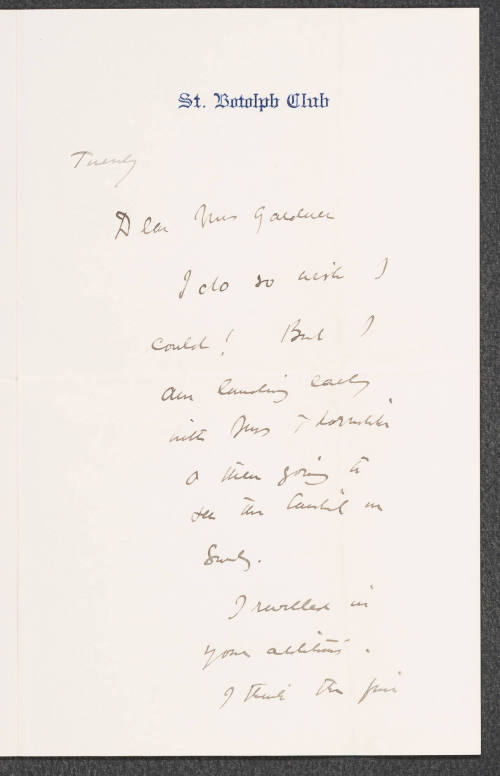 St. Botolph Club
Tuesday
Dear Mrs Gardner
I do so wish I
could! But I
am lunching early
with Mrs Thorndike
& then going to
see the in
Sunday.
I revelled in
your additions.
I think the